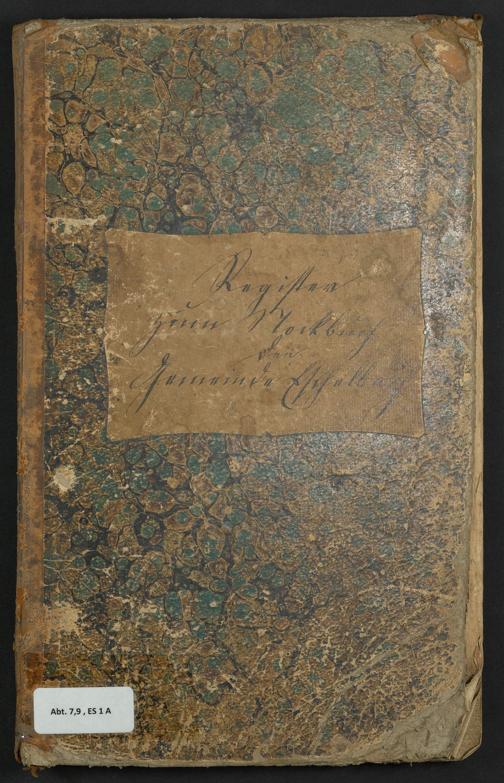 Register
zum Stockbuch
der
Gemeinde Eschelbach
Abt. 7,9 , ES 1 A